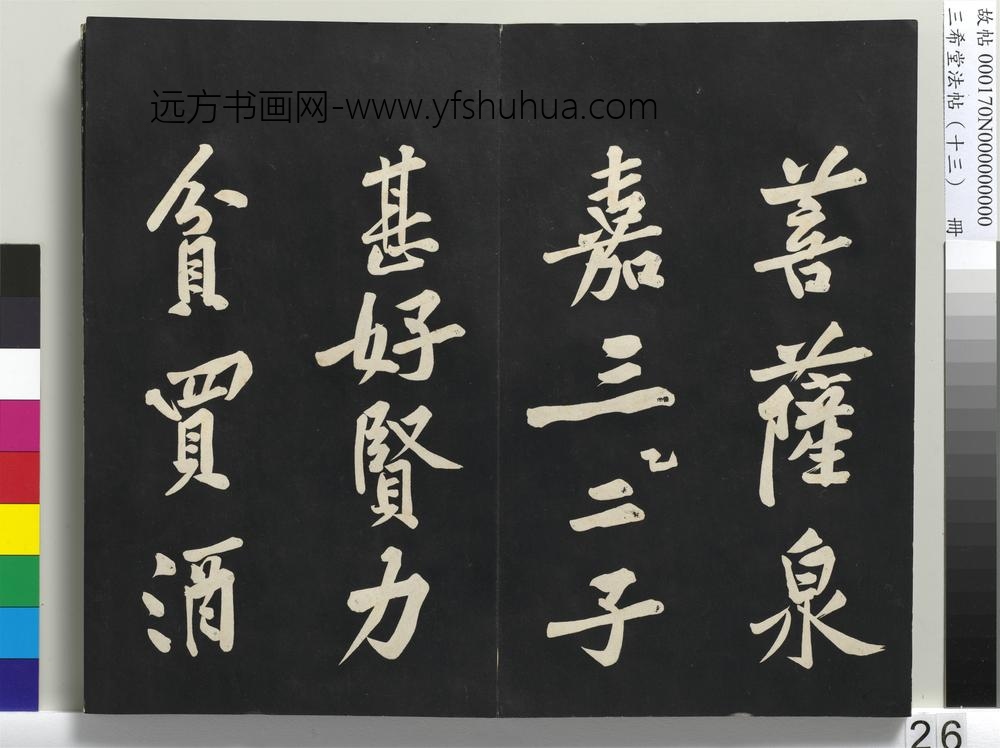 菩薩泉
嘉三二子
甚好賢力
貧買酒
远方书画网-www.yfshuhua.com
故帖 000170N000000000
三希堂法帖（十三） 冊
26